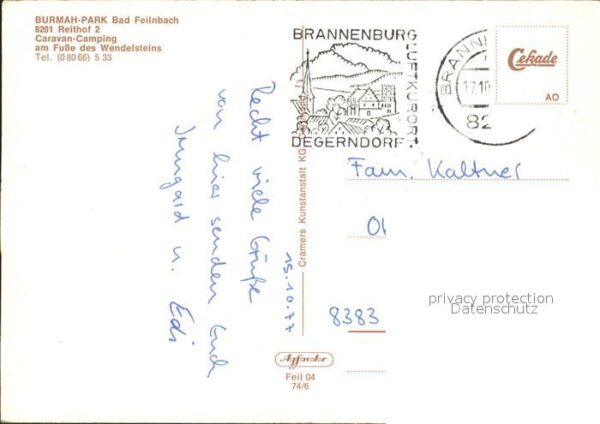 BURMAH-PARK Bad Feilnbach
8201 Reithof 2
Caravan-Camping
am Fuße des Wendelsteins
Tel. (0 80 66) 5 33
BRANNENBURG
LUFTKURORT
DEGERNDORF
BRANNE
17.10
82
Cekade
AO
15.10.77
Recht viele Grüße
von hier senden Euch
Irmgard u. Edi
Cramers Kunstanstalt KG
Fam. Kaltner
8383
privacy protection
Datenschutz
Agfacolor
Feil 04
74/6